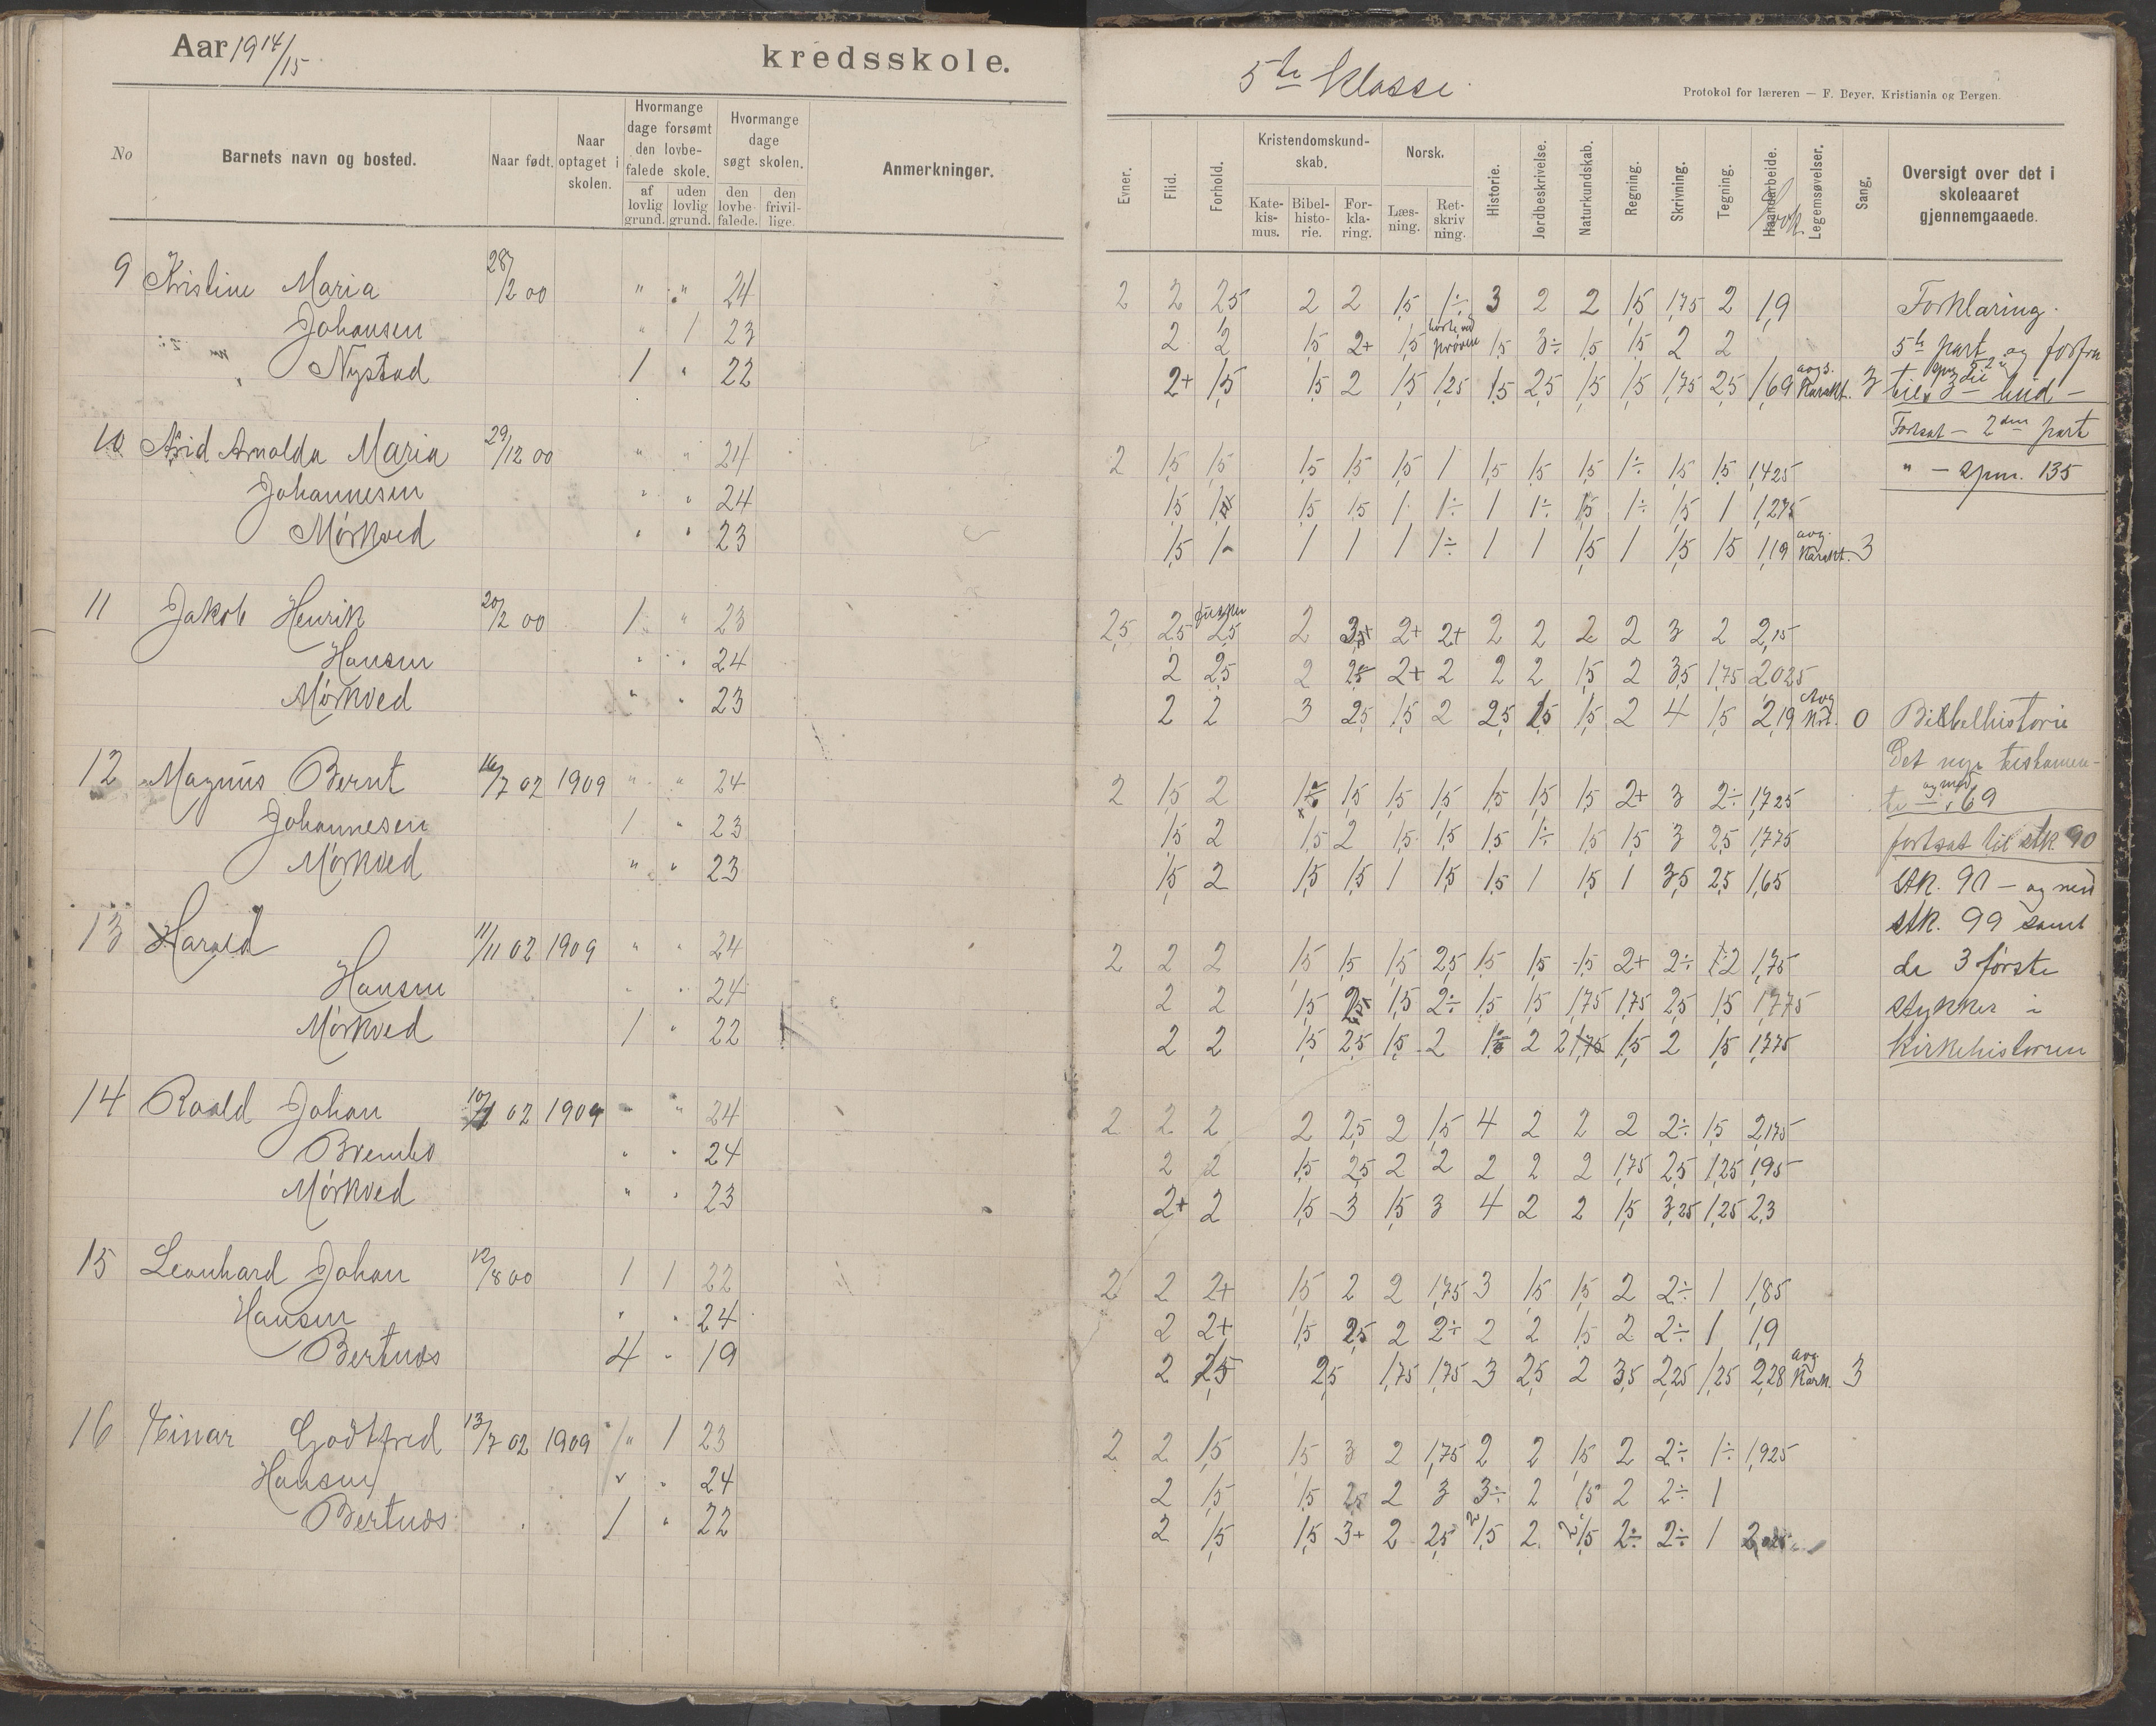 Aar 1914/15
kredsskole.
No
Barnets navn og bosted.
Naar født.
Naar optaget i skolen.
Hvormange dage forsømt den lovbefalede skole.
af lovlig grund.
uden lovlig grund.
Hvormange dage søgt skolen.
den lovbefalede.
den frivillige.
Anmerkninger.
9 Kristine Maria 28/2 00 " " 24
Johansen " 1 23
Nystad 1 " 22
10 Arnolda Maria 29/12 00 " " 24
Johannesen " " 24
Mørkved " " 23
11 Jakob Henrik 20/2 00 1 " 23
Hansen " " 24
Mørkved " " 23
12 Magnus Bernt 16/7 02 1909 " " 24
Johannesen 1 " 23
Mørkved " " 23
13 Harald 11/11 02 1909 " " 24
Hansen " " 24
Mørkved 1 " 22
14 Roald Johan 02 1909 " " 24
Brembo " " 24
Mørkved " " 23
15 Leonhard Johan 12/8 00 1 1 22
Hansen " " 24
Bertnæs 4 " 19
16 Einar Godtfred 13/7 02 1909 " 1 23
Hansen " " 24
Bertnæs 1 " 22
5te Klasse
Protokol for læreren — F. Beyer, Kristiania og Bergen.
Evner.
Flid.
Forhold.
Kristendomskundskab.
Katekismus.
Bibelhistorie.
Forklaring.
Norsk.
Læsning.
Retskrivning.
Historie.
Jordbeskrivelse.
Naturkundskab.
Regning.
Skrivning.
Tegning.
Haandarbeide.
Legemsøvelser.
Sang.
Oversigt over det i skoleaaret gjennemgaaede.
2 2 2,5 2 2 1,5 1÷ 3 2 2 1,5 1,75 2 1,9 Forklaring.
2 2 1,5 2+ 1,5 borte ved prøven 1,5 3÷ 1,5 1,5 2 2 5te part og forfra
2+ 1,5 1,5 2 1,5 1,25 1,5 2,5 1,5 1,5 1,75 2,5 1,69 avgs. Karakt. 3 til 3 — bud —
Fortsat — 2den part
2 1,5 1,5 1,5 1,5 1,5 1 1,5 1,5 1,5 1÷ 1,5 1,5 1,425 " — spm. 135
1,5 1,5 1,5 1 1÷ 1 1÷ 1,5 1÷ 1,5 1 1,275
1,5 1 1 1 1 1÷ 1 1 1,5 1 1,5 1,5 1,19 avg. Karakt. 3
2,5 2,5 2,5 2 2+ 2+ 2 2 2 2 3 2 2,15
2 2,5 2 2,5 2+ 2 2 2 1,5 2 3,5 1,75 2,025
2 2 3 2,5 1,5 2 2,5 1,5 1,5 2 4 1,5 2,19 Avg Krt. 0 Bibelhistorie
Det nye testamen-
2 1,5 2 1,5 1,5 1,5 1,5 1,5 1,5 2+ 3 2÷ 1,725 te — og med 69
1,5 2 1,5 2 1,5 1,5 1,5 1÷ 1,5 1,5 3 2,5 1,775 fortsat til stk 90
1,5 2 1,5 1,5 1 1,5 1,5 1 1,5 1 3,5 2,5 1,65 stk. 90 — og med
stk. 99 samt
2 2 2 1,5 1,5 1,5 2,5 1,5 1,5 1,5 2+ 2÷ 2 1,75 de 3 første
2 2 1,5 2,5 1,5 2÷ 1,5 1,5 1,75 1,75 2,5 1,5 1,775 stykker i
2 2 1,5 2,5 1,5 2 2 2 1,5 2 1,5 1,775 Kirkehistorien
2 2 2 2 2,5 2 1,5 4 2 2 2 2÷ 1,5 2,175
2 2 1,5 2,5 2 2 2 2 2 1,75 2,5 1,25 1,95
2+ 2 1,5 3 1,5 3 4 2 2 1,5 3,25 1,25 2,3
2 2 2+ 1,5 2 2 1,75 3 1,5 1,5 2 2÷ 1 1,85
2 2+ 1,5 2,5 2 2÷ 2 2 1,5 2 2÷ 1 1,9
2 2,5 2,5 1,75 1,75 3 2,5 2 3,5 2,25 1,25 2,28 avg. Kark. 3
2 2 1,5 1,5 3 2 1,75 2 2 1,5 2 2÷ 1÷ 1,925
2 1,5 1,5 2,5 2 3 3÷ 2 1,5 2 2÷ 1
2 1,5 1,5 3+ 2 2,5 1,5 2 1,5 2÷ 2÷ 1